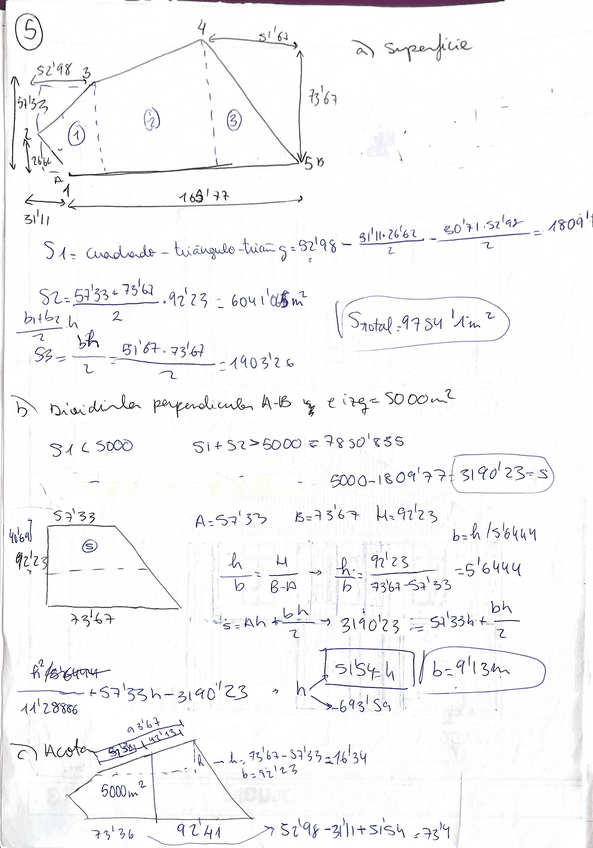 5
4
51'67
a) Superficie
52'98
3
57'33
73'67
2
1
2
3
26'62
A
1
5 B
165'77
31'11
S1 = cuadrado - triángulo - trián g = 52'98 - 31'11·26'62/2 - 30'71·52'98/2 = 1809'7
S2 = 57'33+73'67/2 · 92'23 = 6041'065 m²
b1+b2/2 · h
Stotal = 9754'1 m²
S3 = bh/2 = 51'67·73'67/2 = 1903'26
b) Dividirla perpendicular A-B y e izq = 5000 m²
S1 < 5000 S1+S2 > 5000 = 7850'835
5000 - 1809'77 = 3190'23 = S
57'33
A = 57'33 B = 73'67 H = 92'23
b = h/5'6444
S
92'23
h/b = H/B-A → h/b = 92'23/73'67-57'33 = 5'6444
73'67
S = Ah + bh/2 → 3190'23 = 57'33h + bh/2
h²/11'28886 + 57'33h - 3190'23 → h
51'54 = h
b = 9'13m
-693'59
c) Acota
93'67
52'34
42'13
h
h = 73'67 - 57'33 = 16'34
b = 92'23
5000m²
73'36
92'41
52'98 - 31'11 + 51'54 = 73'4